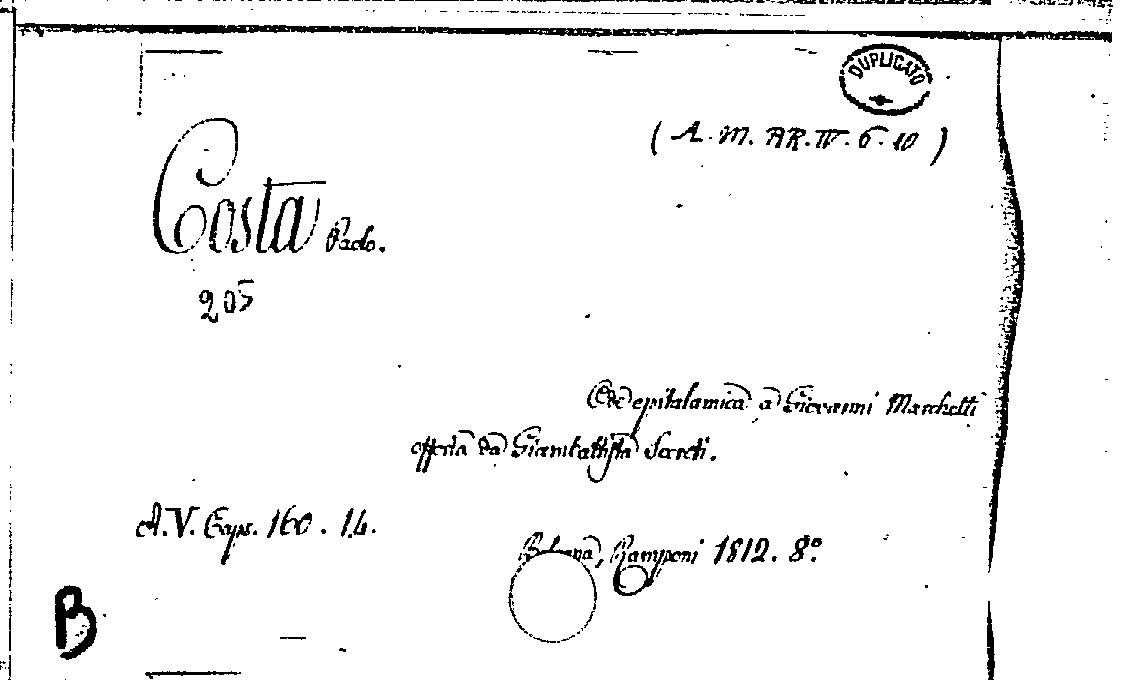 DUPLICATO
( A. M. AR. IV. 6. 10 )
Costa Paolo.
205
Ode epitalamica a Giovanni Marchetti
offerta da Giambattista Sarti.
A. V. Caps. 160. 14.
Bologna, Ramponi 1812. 8º
B